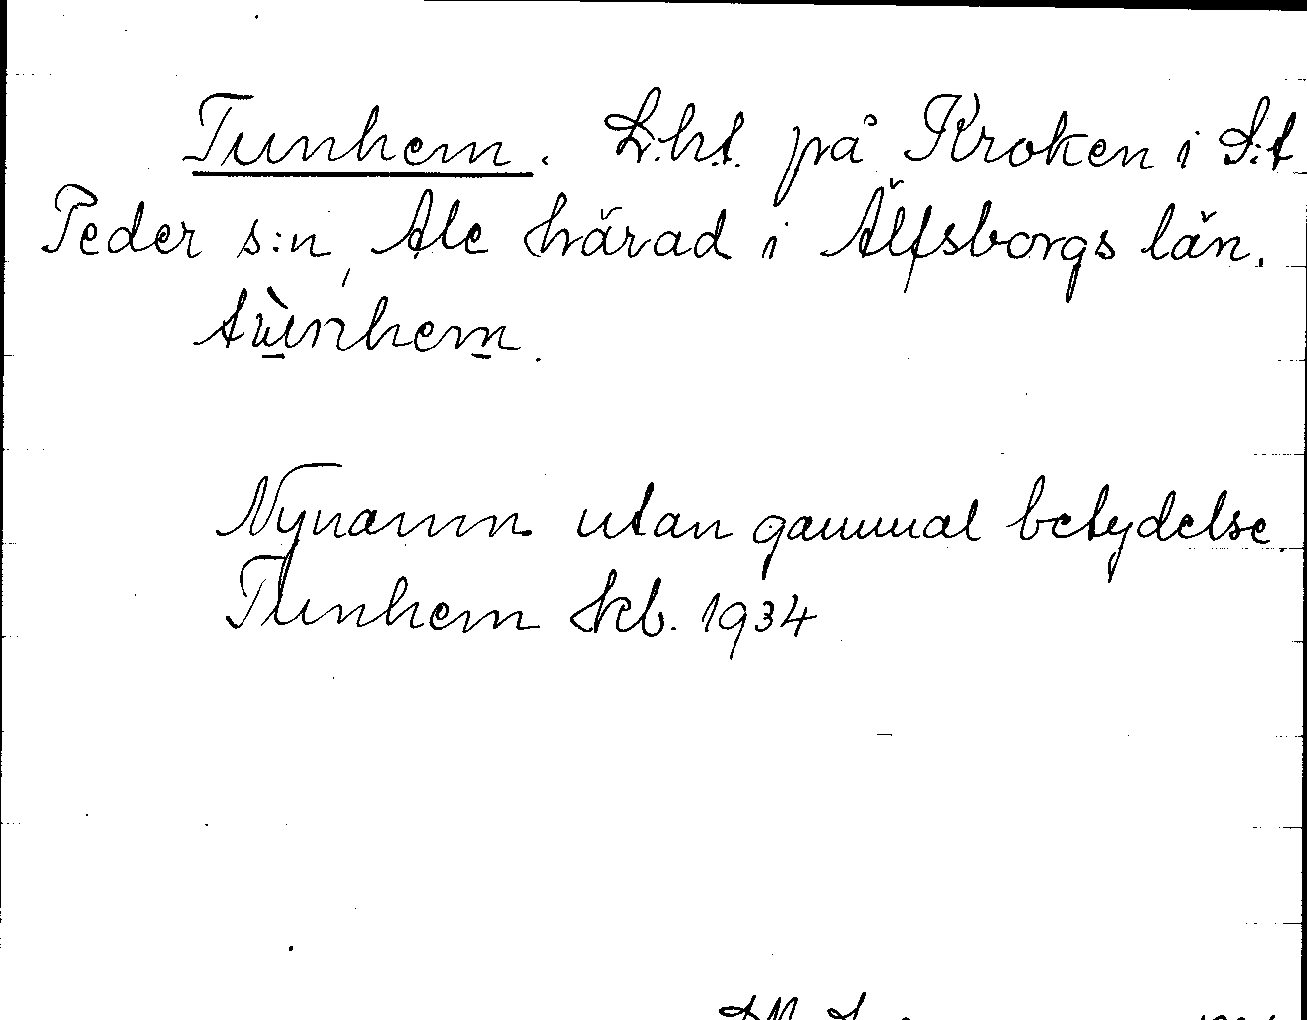 Tunhem. L.h.t. på Kroken i S:t
Peder s:n, Ale härad i Älfsborgs län.
tùnhem.
Nynamn utan gammal betydelse.
Tunhem Skb. 1934